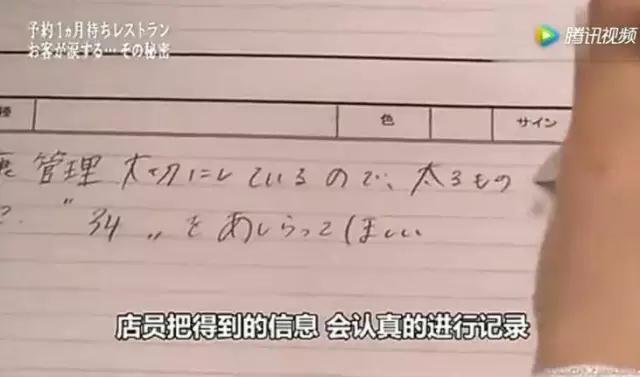 予約1ヵ月待ちレストラン
お客が涙する…その秘密
腾讯视频
種 色 サイン
管理 大切にしているので、太るもの
"34" をあしらってほしい
店员把得到的信息 会认真的进行记录